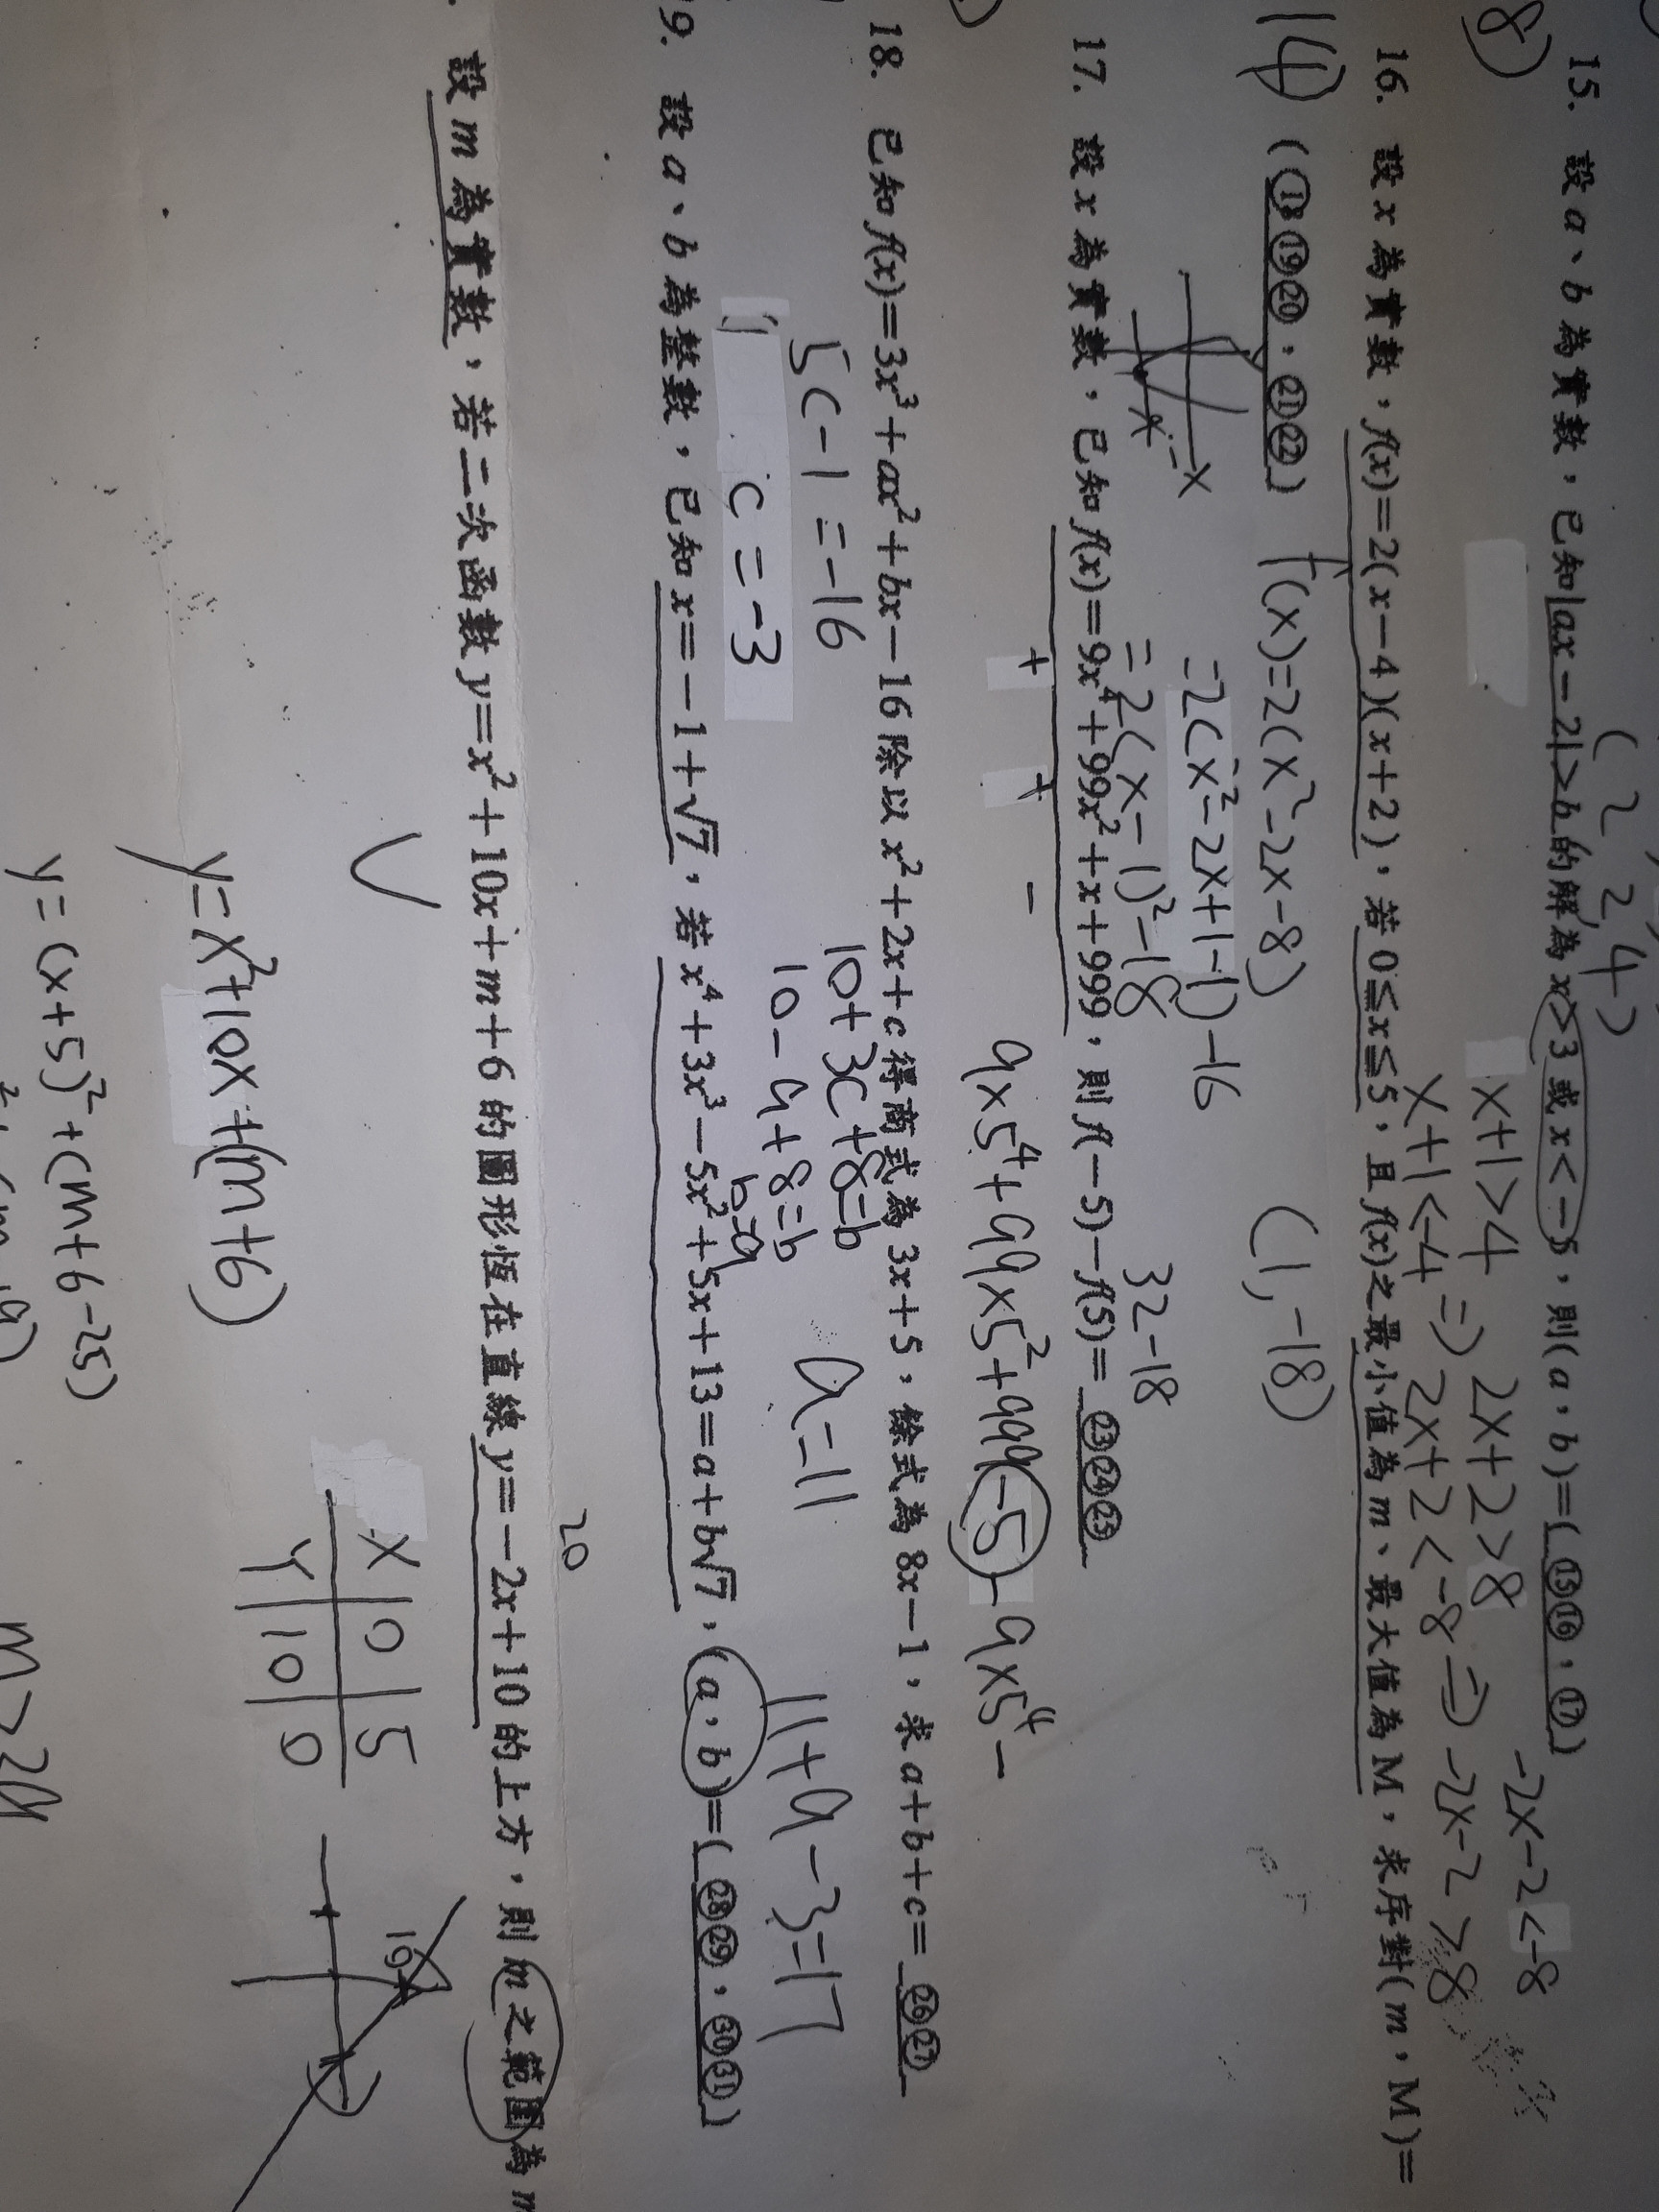 (2 2,4)
15. 設 a、b 為實數，已知|ax－2|>b 的解為 x>3 或 x<－5，則(a，b)=(⑮⑯，⑰)
-2x-2<-8
8)
x+1>4
2x+2>8
x+1<-4 => 2x+2<-8 => -2x-2>8
16. 設 x 為實數，f(x)=2(x－4)(x＋2)，若 0≦x≦5，且 f(x)之最小值為 m、最大值為 M，求序對(m，M)=
(⑱⑲⑳，㉑㉒)
14)
f(x)=2(x²-2x-8)
(1,-18)
=2(x²-2x+1-1)-16
=2(x-1)²-18
32-18
x
x=1
17. 設 x 為實數，已知 f(x)=9x⁴＋99x²＋x＋999，則 f(－5)－f(5)=㉓㉔㉕
+ + -
9x5⁴+99x5²+999-5-9x5⁴-
18. 已知 f(x)=3x³＋ax²＋bx－16 除以 x²＋2x＋c 得商式為 3x＋5，餘式為 8x－1，求 a＋b＋c=㉖㉗
5c-1=-16
10+3c+8=b
a=11
10-9+8=b
b=9
11+9-3=17
c=-3
9. 設 a、b 為整數，已知 x=－1＋√7，若 x⁴＋3x³－5x²＋5x＋13=a＋b√7，(a，b)=(㉘㉙，㉚㉛)
20
設 m 為實數，若二次函數 y=x²＋10x＋m＋6 的圖形恆在直線 y=－2x＋10 的上方，則 m 之範圍為 m
x 0 5
y 10 0
10
y=x²+10x+(m+6)
y=(x+5)²+(m+6-25)